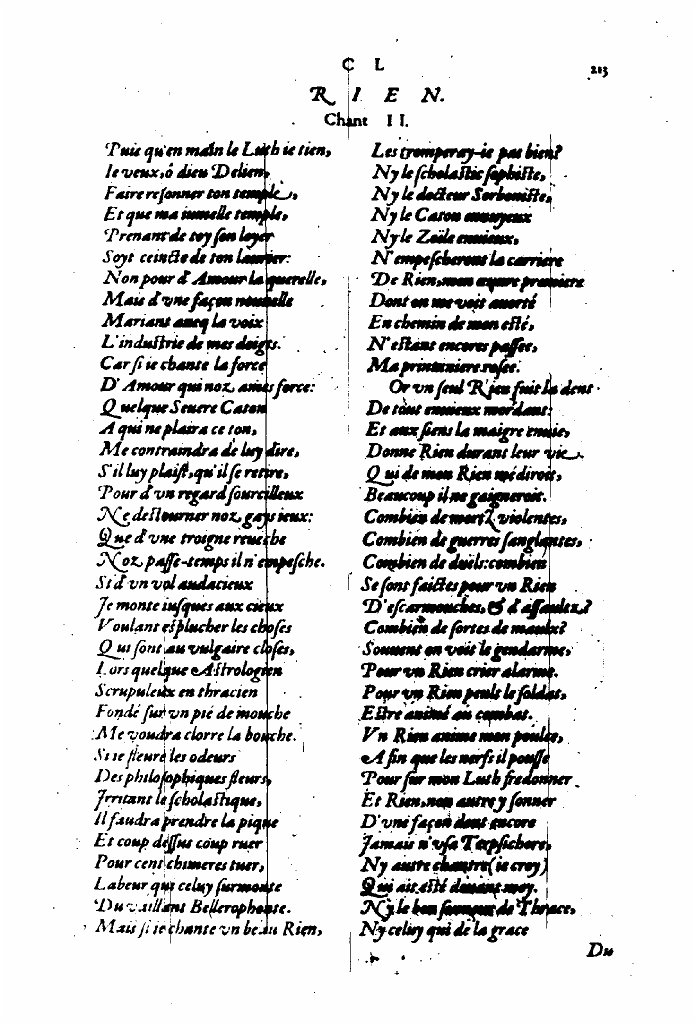 C L
213
R I E N.
Chant II.
Puis qu'en main le Luth ie tien,
Ie veux, ô dieu Delien,
Faire resonner ton temple,
Et que ma iumelle temple,
Prenant de toy son loyer
Soyt ceincte de ton laurier:
Non pour d'Amour la querelle,
Mais d'vne façon nouuelle
Mariant aueq la voix
L'industrie de mes doigts.
Car si ie chante la force
D'Amour qui noz ames force:
Quelque Seuere Caton
A qui ne plaira ce ton,
Me contraindra de luy dire,
S'il luy plaist, qu'il se retire,
Pour d'vn regard sourcilleux
Ne destourner noz gays ieux:
Que d'vne troigne reueche
Noz passe-temps il n'empesche.
Si d'vn vol audacieux
Je monte iusques aux cieux
Voulant esplucher les choses
Qui sont au vulgaire closes,
Lors quelque Astrologien
Scrupuleux en thracien
Fondé sur vn pié de mouche
Me voudra clorre la bouche.
Si ie fleure les odeurs
Des philosophiques fleurs,
Irritant le scholastique,
Il faudra prendre la pique
Et coup dessus coup ruer
Pour cent chimeres tuer,
Labeur qui celuy surmonte
Du vaillant Bellerophonte.
Mais si ie chante vn beau Rien,
Les tromperay-ie pas bien?
Ny le scholastic sophiste,
Ny le docteur Sorboniste,
Ny le Caton ennuyeux
Ny le Zoile enuieux,
N'empescheront la carriere
De Rien, mon œuure premiere
Dont on me voit auorté
En chemin de mon esté,
N'estant encores passee,
Ma printaniere rosee.
Or vn seul Rien fuit la dent
De tout enuieux mordant:
Et aux siens la maigre enuie,
Donne Rien durant leur vie.
Qui de mon Rien médiroit,
Beaucoup il ne gaigneroit.
Combien de mortz violentes,
Combien de guerres sanglantes,
Combien de duils: combien
Se sont faictes pour vn Rien
D'escarmouches, & d'assaultz?
Combien de sortes de maulx?
Souuent on voit le gendarme,
Pour vn Rien crier alarme.
Pour vn Rien peult le soldat,
Estre animé au combat.
Vn Rien anime mon poulce,
A fin que les nerfs il pousse
Pour sur mon Luth fredonner
Et Rien, non autre y sonner
D'vne façon dont encore
Jamais n'vsa Terpsichore,
Ny autre chantre (ie croy)
Qui ait esté deuant moy.
Ny le bon sonneur de Thrace,
Ny celuy qui de la grace
Du